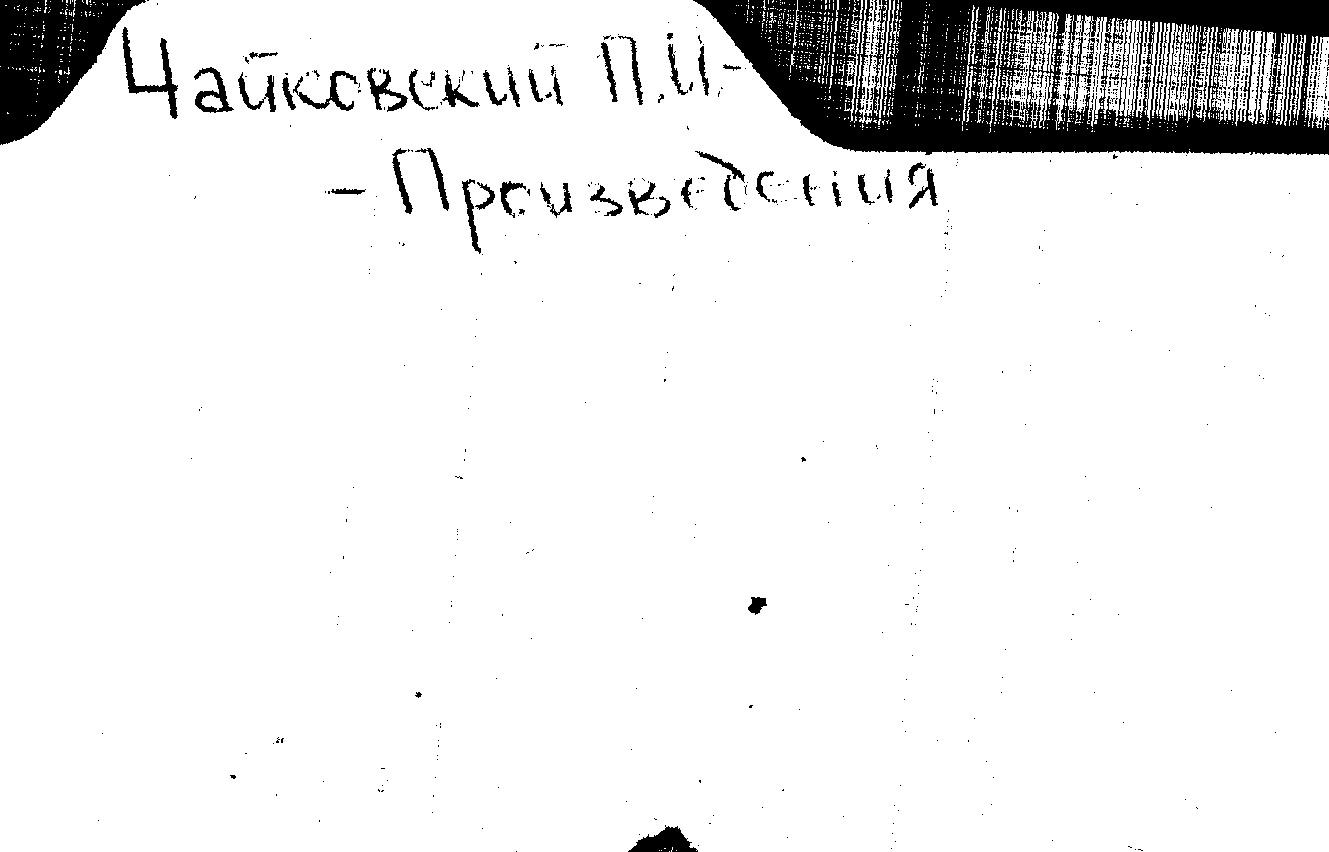 Чайковский П.И.-
- Произведения